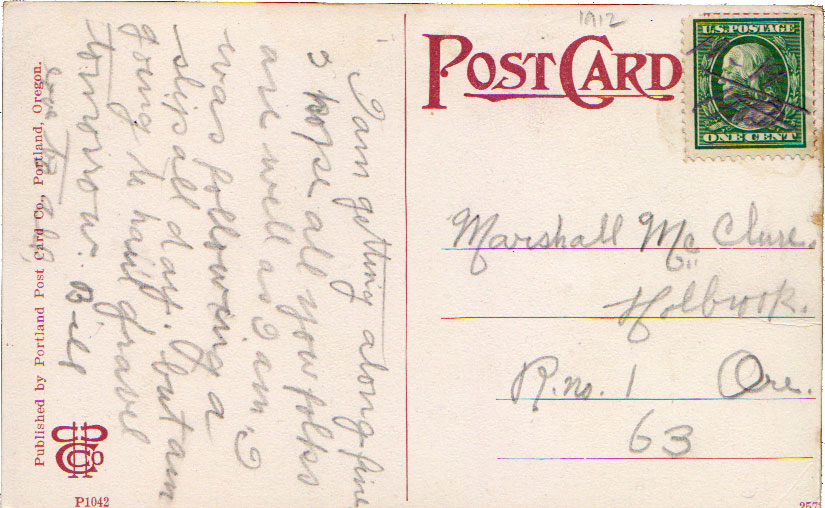 1912
POST CARD
U.S. POSTAGE
ONE CENT
I am getting along fine
& hope all you folks
are well as I am. I
was following a
slip all day. but am
going to haul gravel
tomorrow. Bill
Marshall Mc Clure.
Holbrook.
R.no. 1 Ore.
63
Published by Portland Post Card Co., Portland, Oregon.
P1042
257